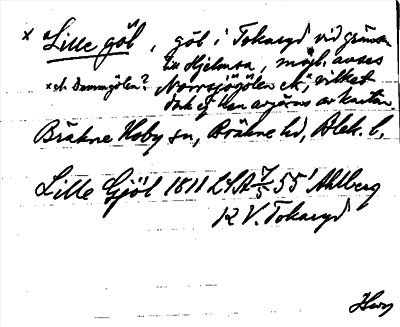 × Lille göl, göl i Tokaryd vid gränsen
till Hjelmsa, möjl. avses
× el. Dammgölen? Norrsjögölen ek., vilket
dock ej kan avgöras av kartan.
Bräkne Hoby sn, Bräkne hd, Blek. l.
Lille Gjöl 1811 LSA 7/5 55' Ahlberg
K V. Tokaryd